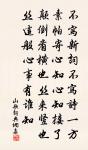 不寫新詞不寫詩一方
素帕寄心知心知接了
顛倒看橫也絲來豎也
絲這般心事有誰知
山歌